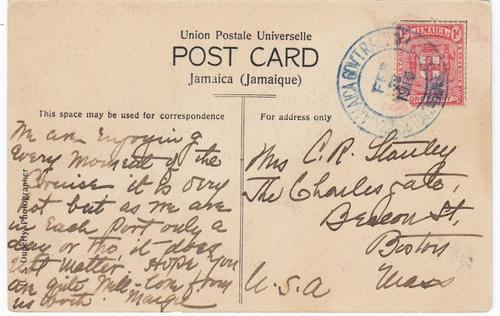 Union Postale Universelle
POST CARD
Jamaica (Jamaique)
This space may be used for correspondence
For address only
JAMAICA
JAMAICA GOVT RAILWAY
FEB
1916
Duperly Photographer
We are enjoying
Every Moment of the
Cruise it is very
hot but as we are
in Each Port only a
day or two it does
not matter. Hope you
are quite Well - Love from
us both Margie
Mrs C. R. Stanley
The Charlesgate,
Beacon St,
Boston
Mass
U.S.A